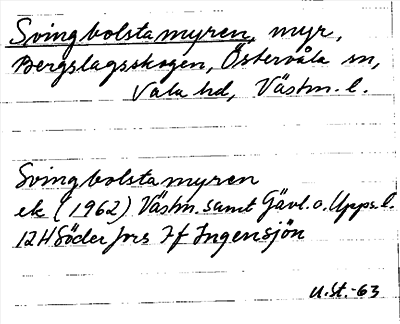 Svingbolstamyren, myr,
Bergslagsskogen, Östervåla sn,
Våla hd, Västm. l.
Svingbolstamyren
ek (1962) Västm. samt Gävl. o. Upps. l.
12H Söderfors If Ingensjön
U.St.-63